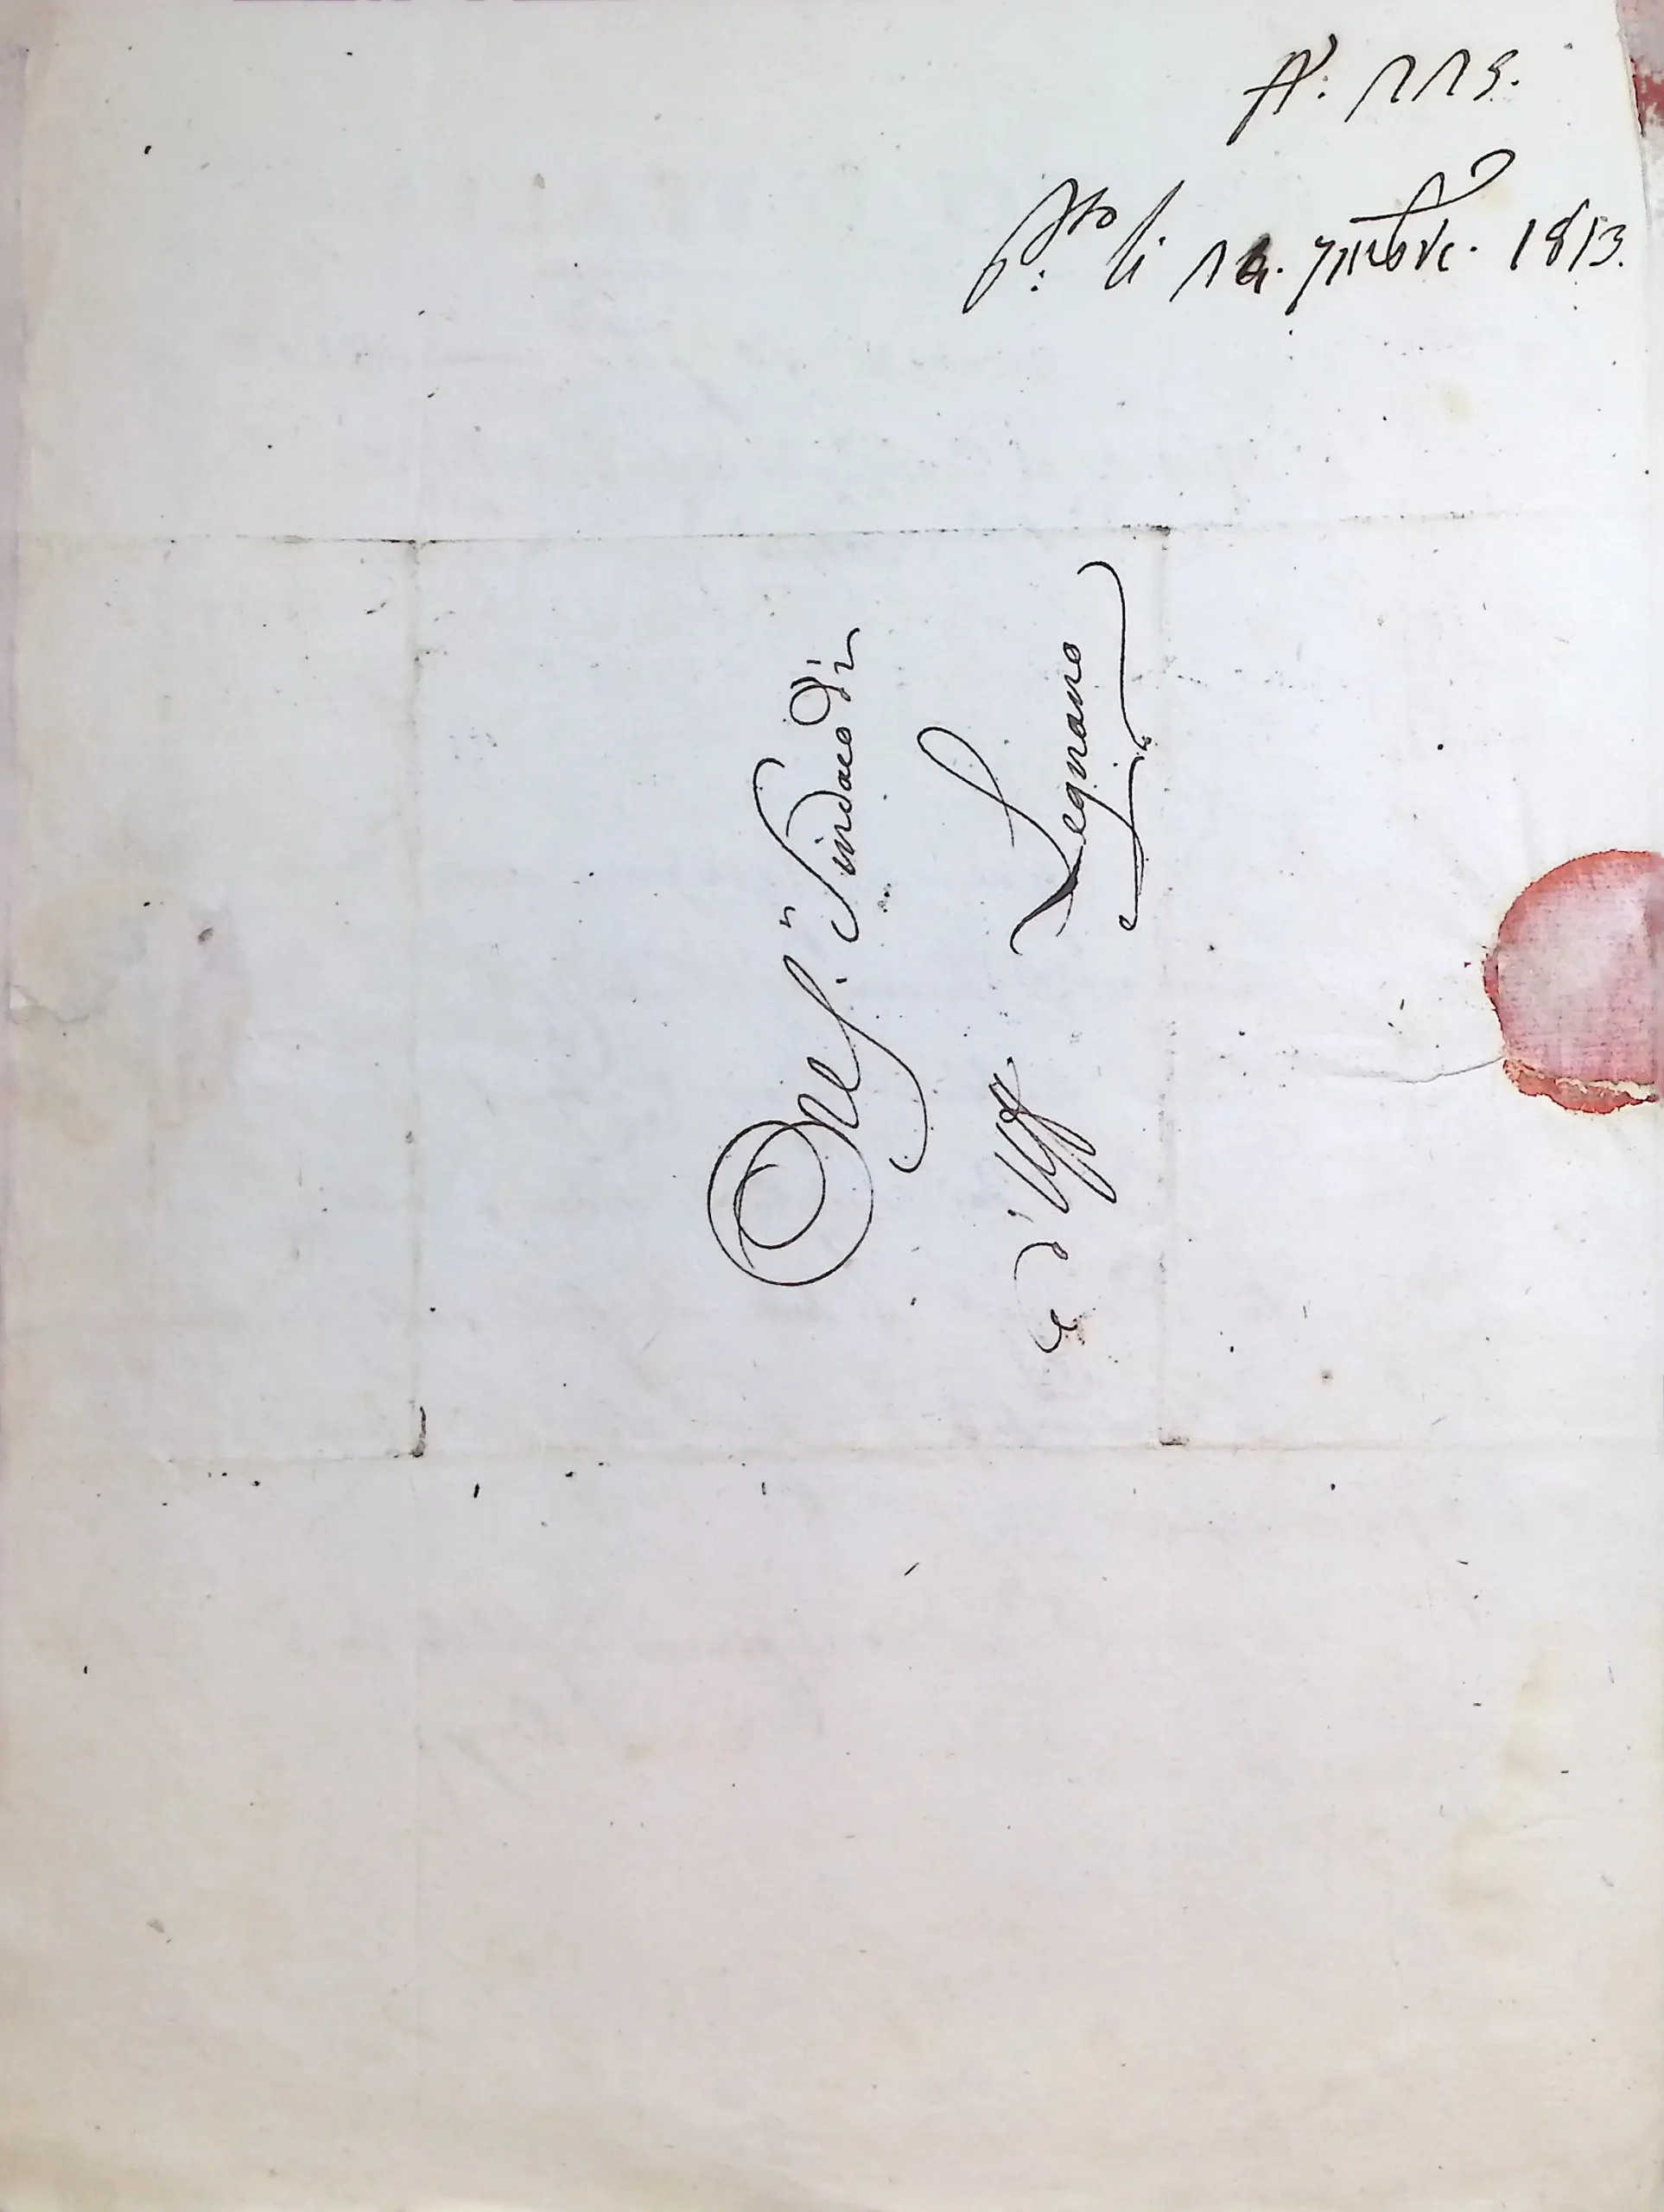 N°: 115.
P.to li 14. 7mbre. 1813.
Al S.r Sindaco di
Legnano
d'Uff.o